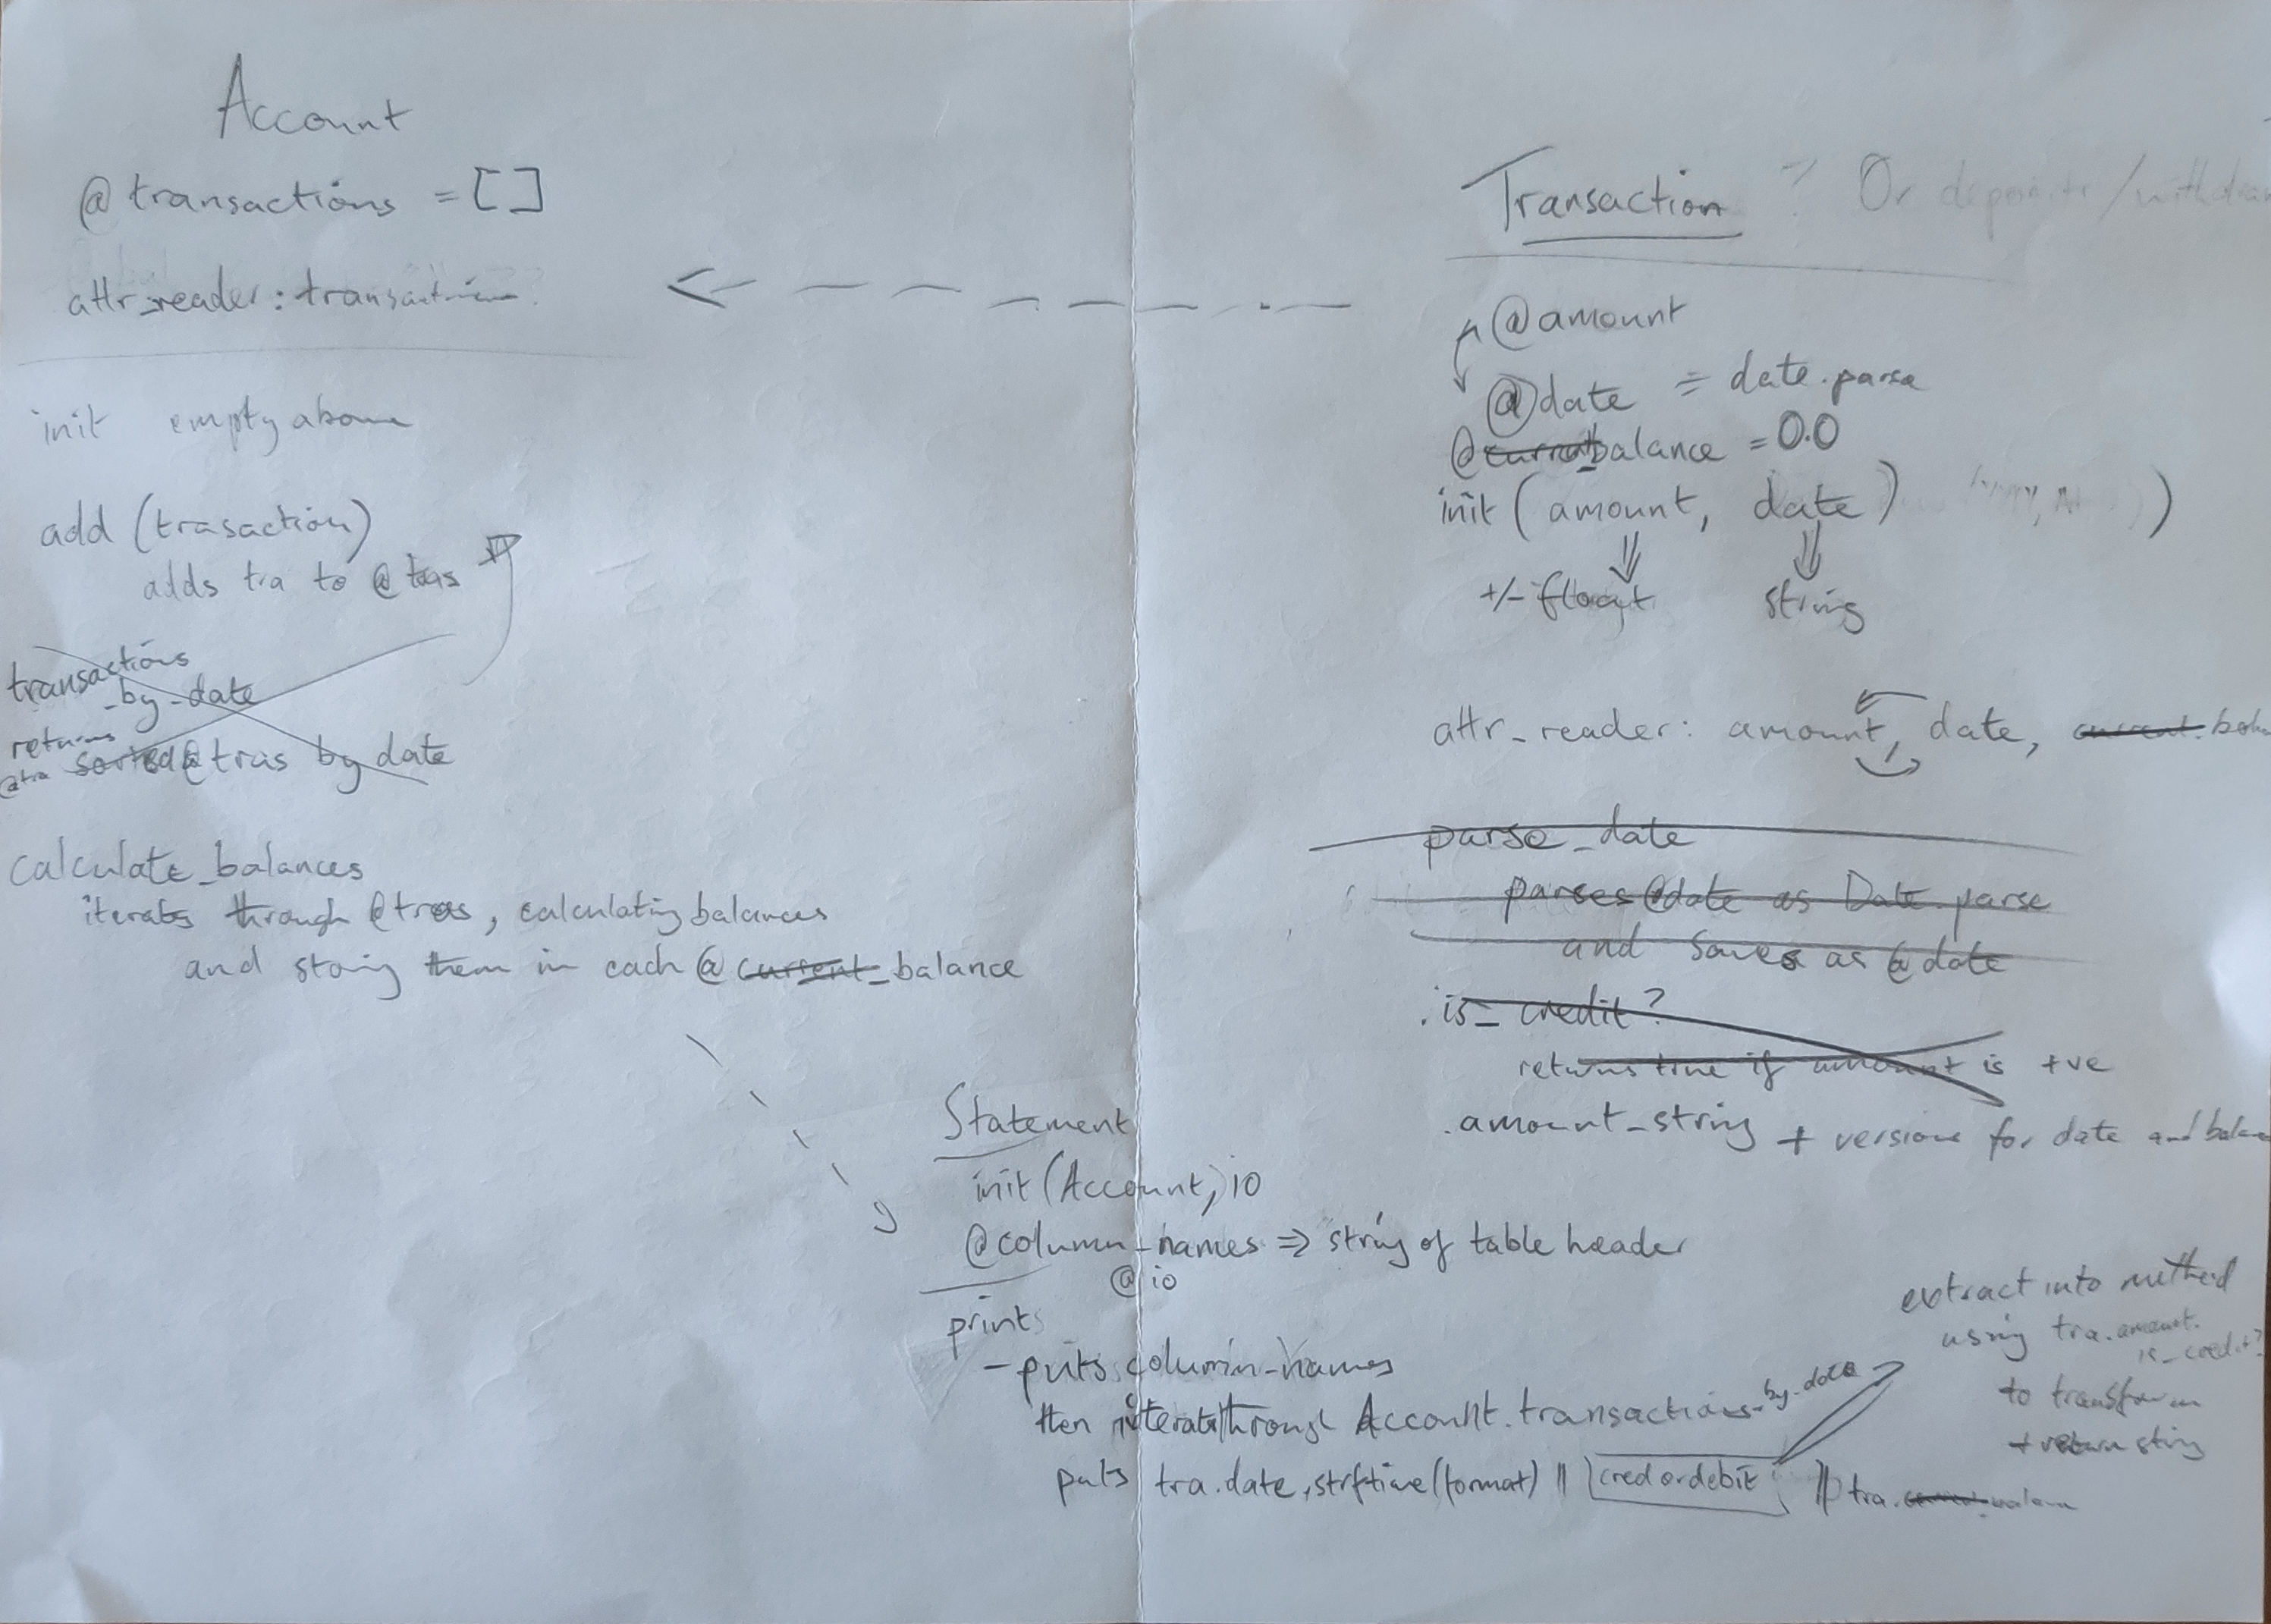 Account
@transactions = []
attr_reader: transactions
init empty above
add (trasaction)
adds tra to @tras
transactions
_by_date
returns
@tra sorted @tras by date
calculate_balances
iterates through @tras, calculating balances
and storing them in each @current_balance
Transaction ? Or deposits/withdraw
@amount
@date = date.parse
@current_balance = 0.0
init (amount, date) )
+/- float string
attr_reader: amount, date, current_bala
parse_date
parses @date as Date.parse
and saves as @date
.is_credit?
returns true if amount is +ve
.amount_string + versions for date and balance
Statement
init (Account, io
@column_names => string of table header
@io
prints
- puts column_names
then iterate through Account.transactions_by_date
puts tra.date.strftime(format) || cred or debit || tra.
extract into method
using tra.amount.
is_credit?
to transform
+ return string